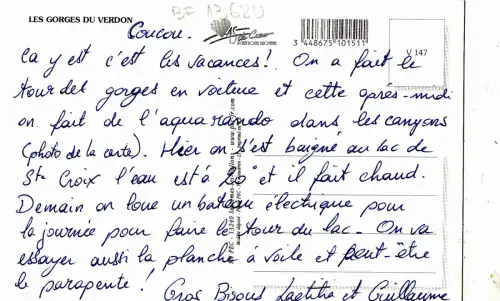 LES GORGES DU VERDON
BF 17 620
3 448675 101511
V 147
Coucou.
Ca y est c'est les vacances! On a fait le
tour des gorges en voiture et cette après-midi
on fait de l'aquarando dans les canyons
(photo de la carte). Hier on s'est baigné au lac de
Ste Croix l'eau est à 20° et il fait chaud.
Demain on loue un bateau électrique pour
la journée pour faire le tour du lac - On va
essayer aussi la planche à voile et peut-être
le parapente!
Gros Bisous Laetitia et Guillaume